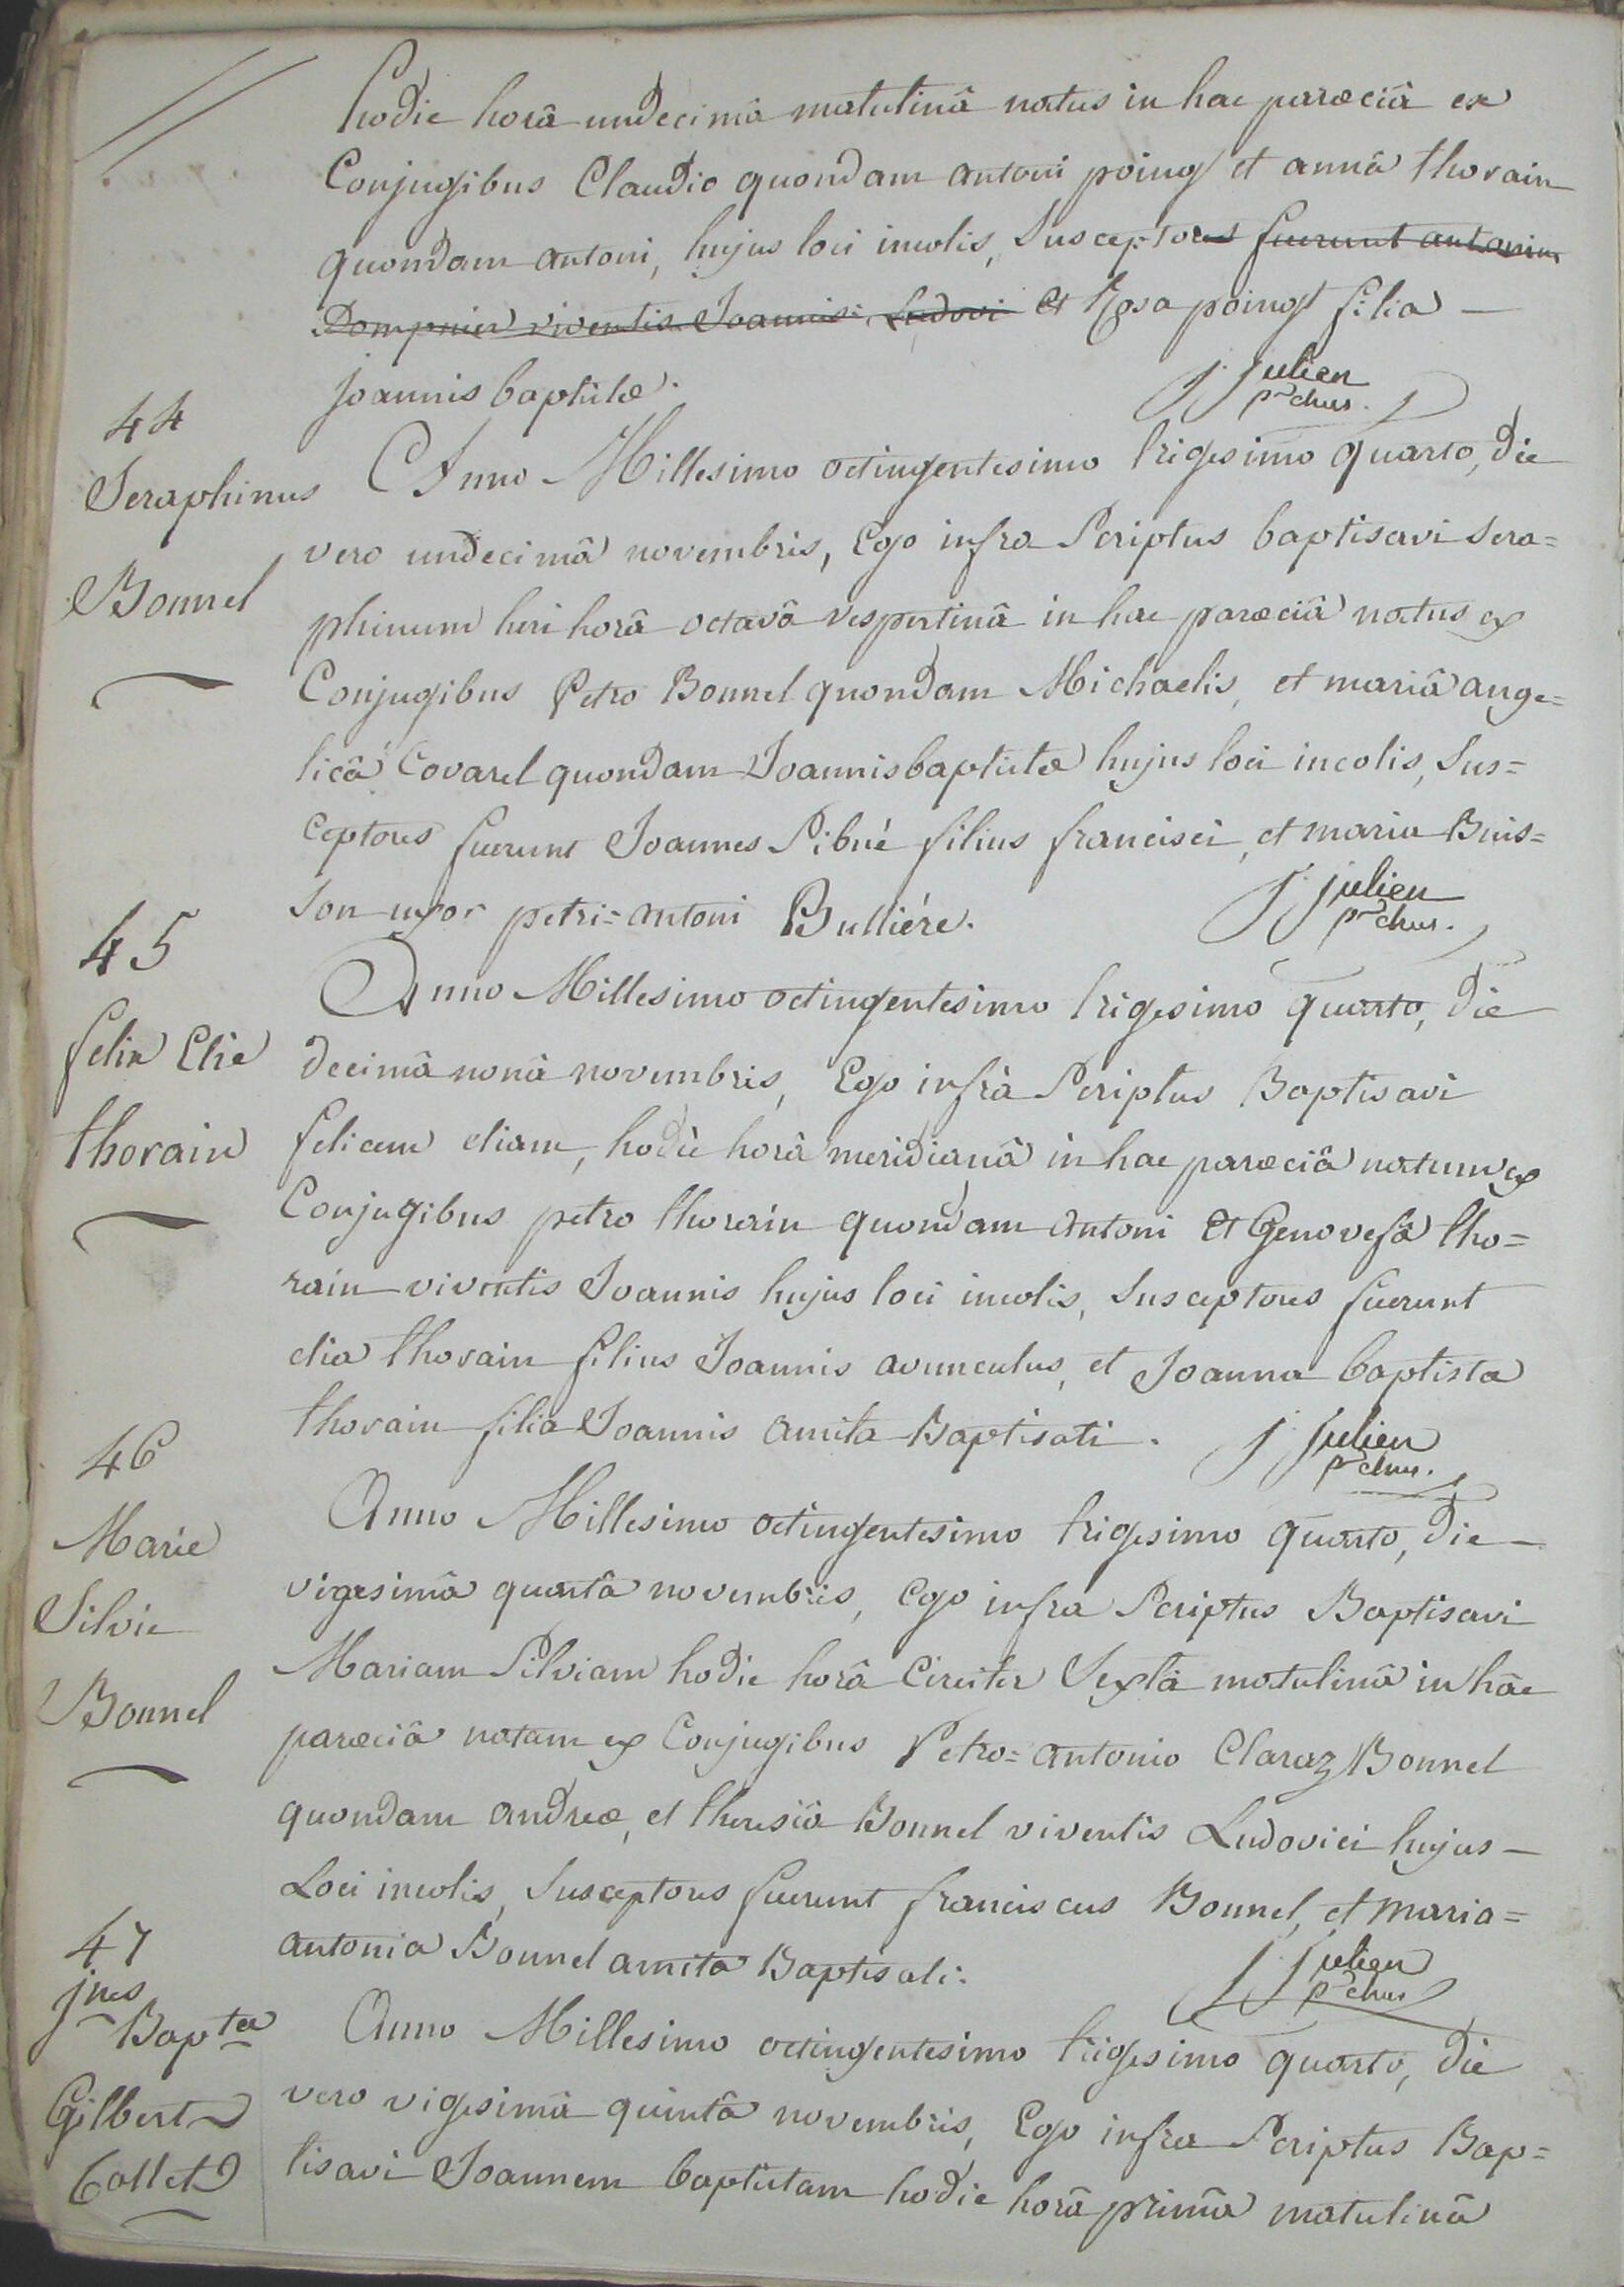 hodie horâ undecimâ matutinâ natus in hac parœciâ ex
Conjugibus Claudio quondam antoni poingt et annâ thorain
quondam antoni, hujus loci incolis, Susceptores fuerunt antonius
Dompnier viventis Joannis Ludovi et Rosa poingt filia
joannis baptistæ.
j julien
p-chus.
44
Seraphinus
Bonnel
Anno Millesimo octingentesimo trigesimo quarto, die
vero undecimâ novembris, Ego infra Scriptus baptisavi sera=
phinum heri horâ octavâ vespertinâ in hac parœciâ natus ex
Conjugibus Petro Bonnel quondam Michaelis, et mariâ ange=
licâ Covarel quondam Joannisbaptistæ hujus loci incolis, Sus=
ceptores fuerunt Joannes Sibué filius francisci, et maria Buis=
son uxor petri=antoni Bulliére.
j julien
p-chus.
45
felix Elie
thorain
Anno Millesimo octingentesimo trigesimo quarto, die
decimâ nonâ novembris, Ego infrà Scriptus Baptisavi
felicem eliam, hodiè horâ meridianâ in hac parœciâ natum ex
Conjugibus petro thorain quondam antoni et Genovefâ tho=
rain viventis Joannis hujus loci incolis, Susceptores fuerunt
elia thorain filius Joannis avunculus, et Joanna baptista
thorain filia Joannis amita Baptisati.
j julien
p-chus.
46
Marie
Silvie
Bonnel
Anno Millesimo octingentesimo trigesimo quarto, die
vigesimâ quartâ novembris, Ego infra Scriptus Baptisavi
Mariam Silviam hodie horâ Circiter Sextâ matutinâ in hâc
parœciâ natam ex Conjugibus Petro=antonio Claraz Bonnel
quondam andreæ, et theresiâ Bonnel viventis Ludovici hujus
Loci incolis, Susceptores fuerunt franciscus Bonnel, et maria=
antonia Bonnel amita Baptisati.
j julien
p-chus
47
jnes
Bapta
Gilbert
Collet
Anno Millesimo octingentesimo trigesimo quarto, die
vero vigesimâ quintâ novembris, Ego infra Scriptus Bap=
tisavi Joannem baptistam hodie horâ primâ matutinâ